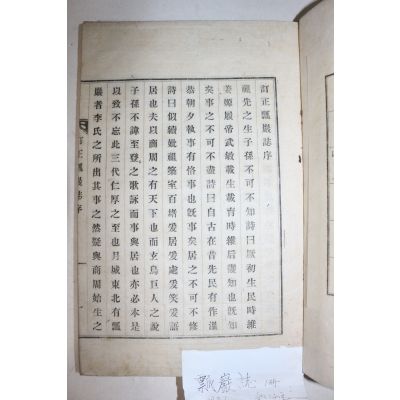 訂正瓢巖誌序
祖先之生子孫不可不知詩曰厥初生民時維
姜嫄履帝武敏載生載育時維后稷知也旣知
矣事之不可不盡詩曰自古在昔先民有作溫
恭朝夕執事有恪事也旣事矣居之不可不修
詩曰似續妣祖築室百堵爰居爰處爰笑爰語
居也夫以商周之有天下也而玄鳥巨人之說
子孫不諱至登之歌詠而事與居也亦必本是
以致不忘此三代仁厚之至也月城東北有瓢
巖者李氏之所出其事之然疑與商周始生之
訂正瓢巖誌序
瓢巖誌